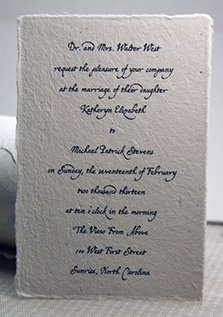 Dr. and Mrs. Walter West
request the pleasure of your company
at the marriage of their daughter
Katheryn Elizabeth
to
Michael Patrick Stevens
on Sunday, the seventeenth of February
two thousand thirteen
at ten o'clock in the morning
The View From Above
100 West First Street
Sunrise, North Carolina